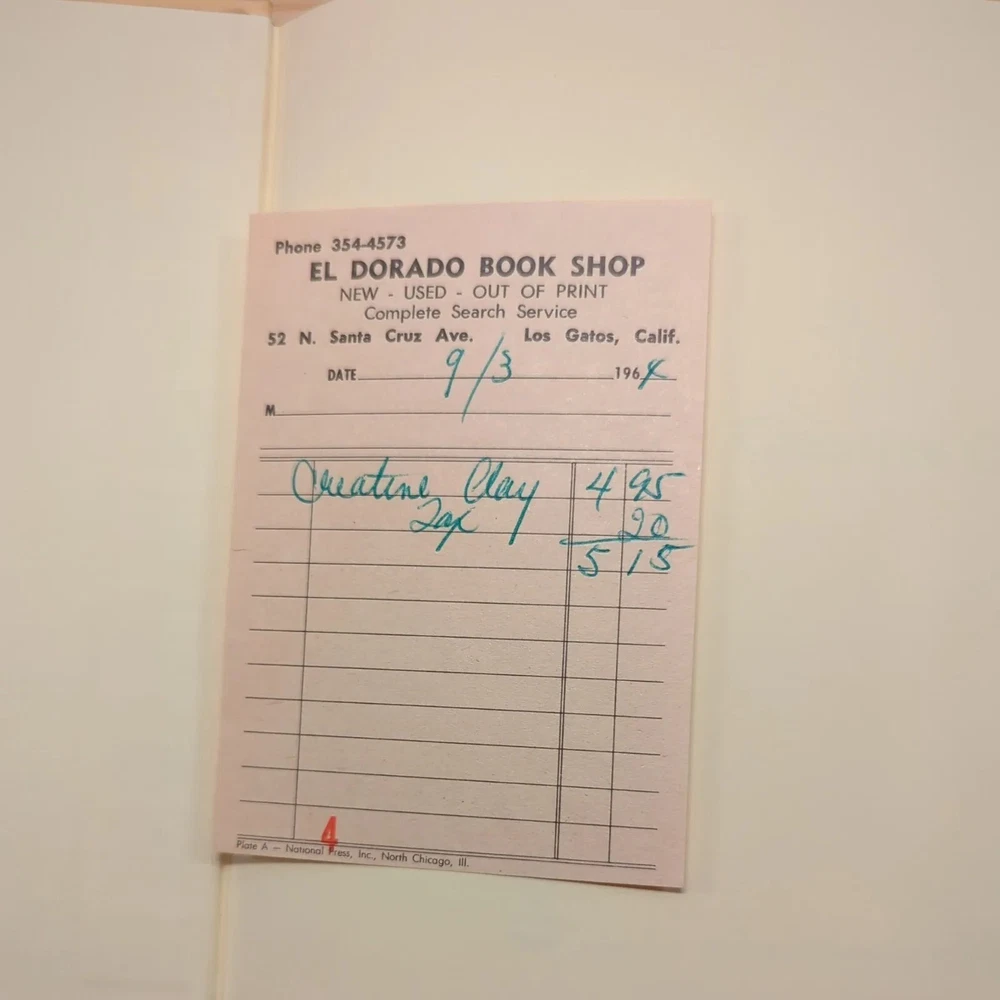 Phone 354-4573
EL DORADO BOOK SHOP
NEW - USED - OUT OF PRINT
Complete Search Service
52 N. Santa Cruz Ave. Los Gatos, Calif.
DATE 9/3 1964
M
Creative Clay 4 95
Tax 20
5 15
4
Plate A — National Press, Inc., North Chicago, Ill.